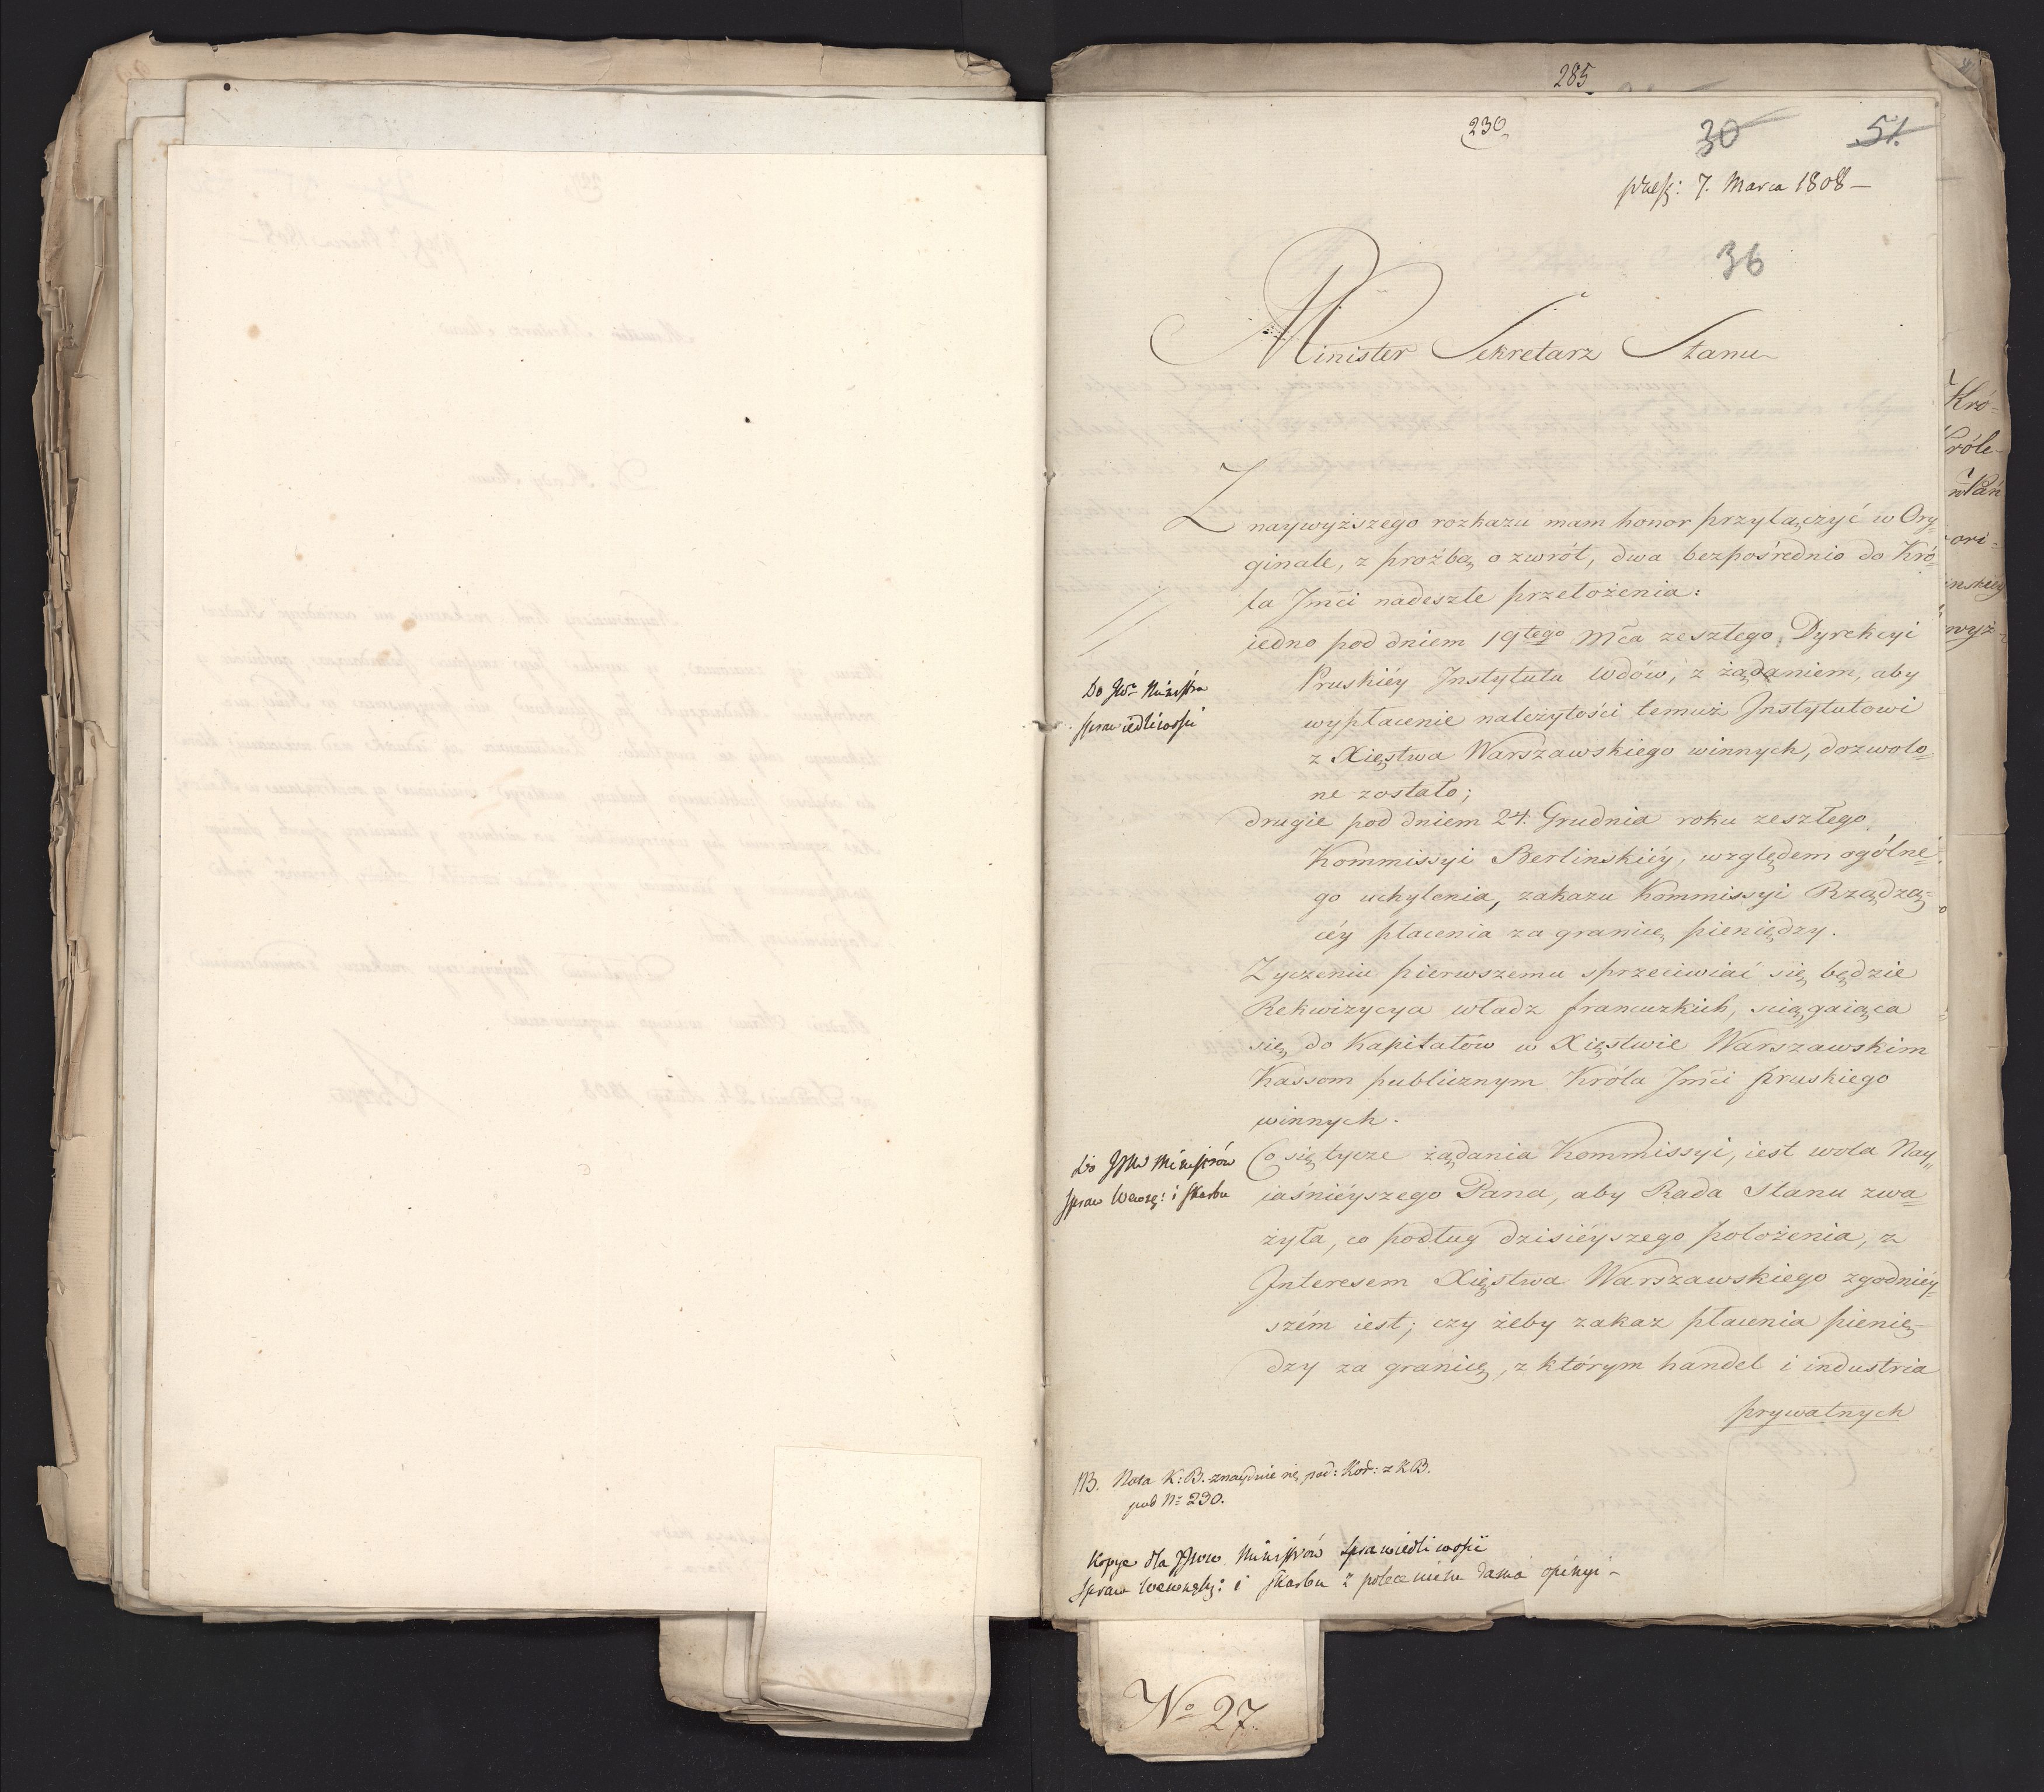 285
230
30
51.
36
praes: 7. Marca 1808 —
Minister Sekretarz Stanu
Z naywyższego rozkazu mam honor przyłączyć w Ory=
ginale, z proźbą o zwrót, dwa bezpośrednio do Kró=
la Jmći nadeszłe przełożenia:
iedno pod dniem 19tego Mća zeszłego, Dyrekcyi
Pruskiéy Jnstytutu Wdów, z żądaniem, aby
wypłacenie należytości temuż Jnstytutowi
z Xięstwa Warszawskiego winnych, dozwolo=
ne zostało;
Do JWo Ministra
Sprawiedliwości
drugie pod dniem 24. Grudnia roku zeszłego
Kommissyi Berlinskiéy, względem ogólne=
go uchylenia, zakazu Kommissyi Rządzą=
céy płacenia za granicę pieniędzy.
Zyczeniu pierwszemu sprzeciwiać się będzie
Rekwizycya władz francuzkich, sciągaiąca
się do Kapitałów w Xięstwie Warszawskim
Kassom publicznym Króla Jmći pruskiego
winnych.
Do JJWW Ministrów
Spraw Wewnę: i Skarbu
Co się tycze żądania Kommissyi, iest wola Nay=
iaśniéyszego Pana, aby Rada Stanu zwa=
żyła, co podług dzisiéyszego położenia, z
Jnteresem Xięstwa Warszawskiego zgodniéy=
szém iest; czy żeby zakaz płacenia pienię=
dzy za granicę, z którym handel i industria
prywatnych
NB. Nota K: B. znayduie się pod: Kor: z KB.
pod No 230.
Kopye dla JJWW Ministrów Sprawiedliwości
Spraw Wewnętrz: i Skarbu z poleceniem dania opinyi —
No 27.
Kró=
Króle=
ori=
wyż=